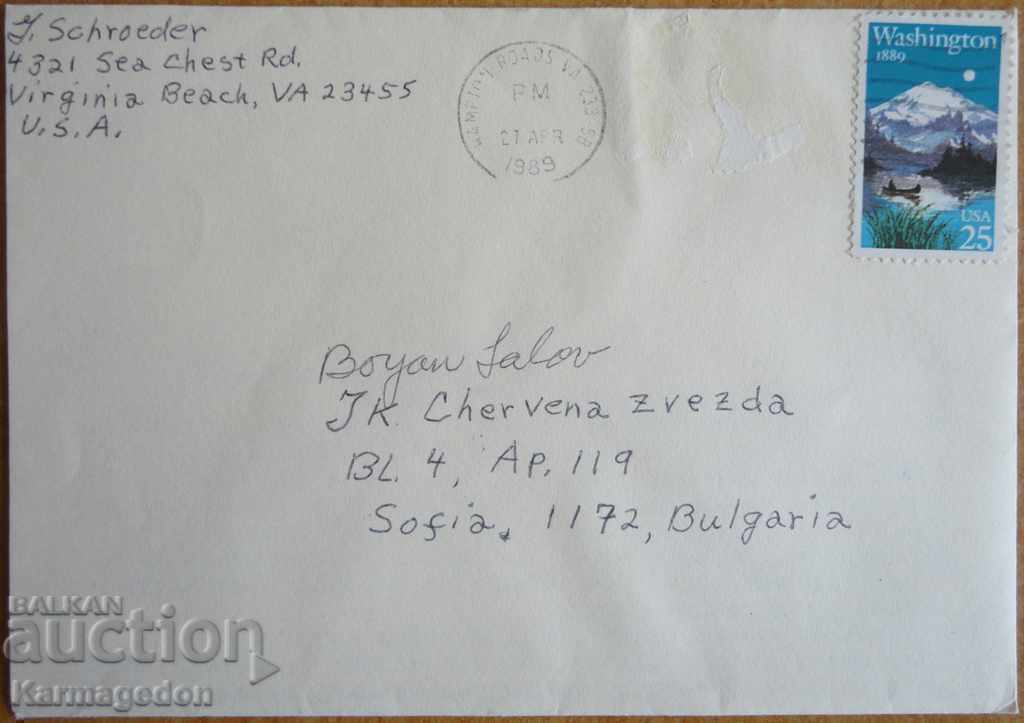 J. Schroeder
4321 Sea Chest Rd.
Virginia Beach, VA 23455
U.S.A.
HAMPTON ROADS VA 233 9B
PM
27 APR
1989
Washington
1889
USA
25
Boyan Lalov
JK Chervena Zvezda
BL. 4, Ap. 119
Sofia, 1172, Bulgaria
BALKAN
auction
Karmagedon